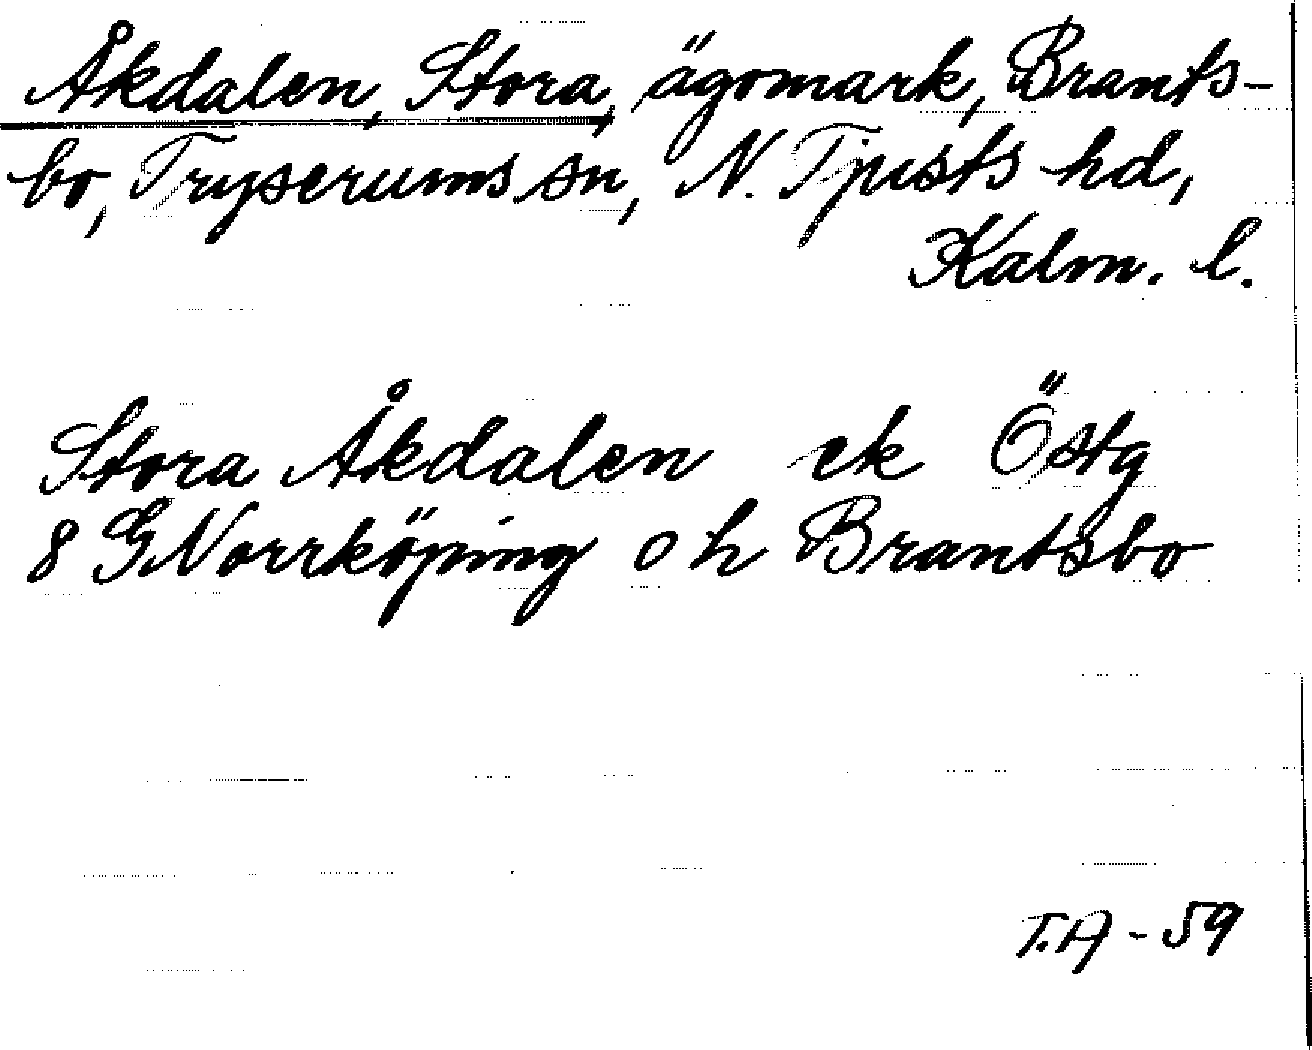 Åkdalen, Stora, ägomark, Brants-
bo, Tryserums sn, N. Tjusts hd,
Kalm. l.
Stora Åkdalen ek Östg
8 G Norrköping o h Brantsbo
T.A - 59